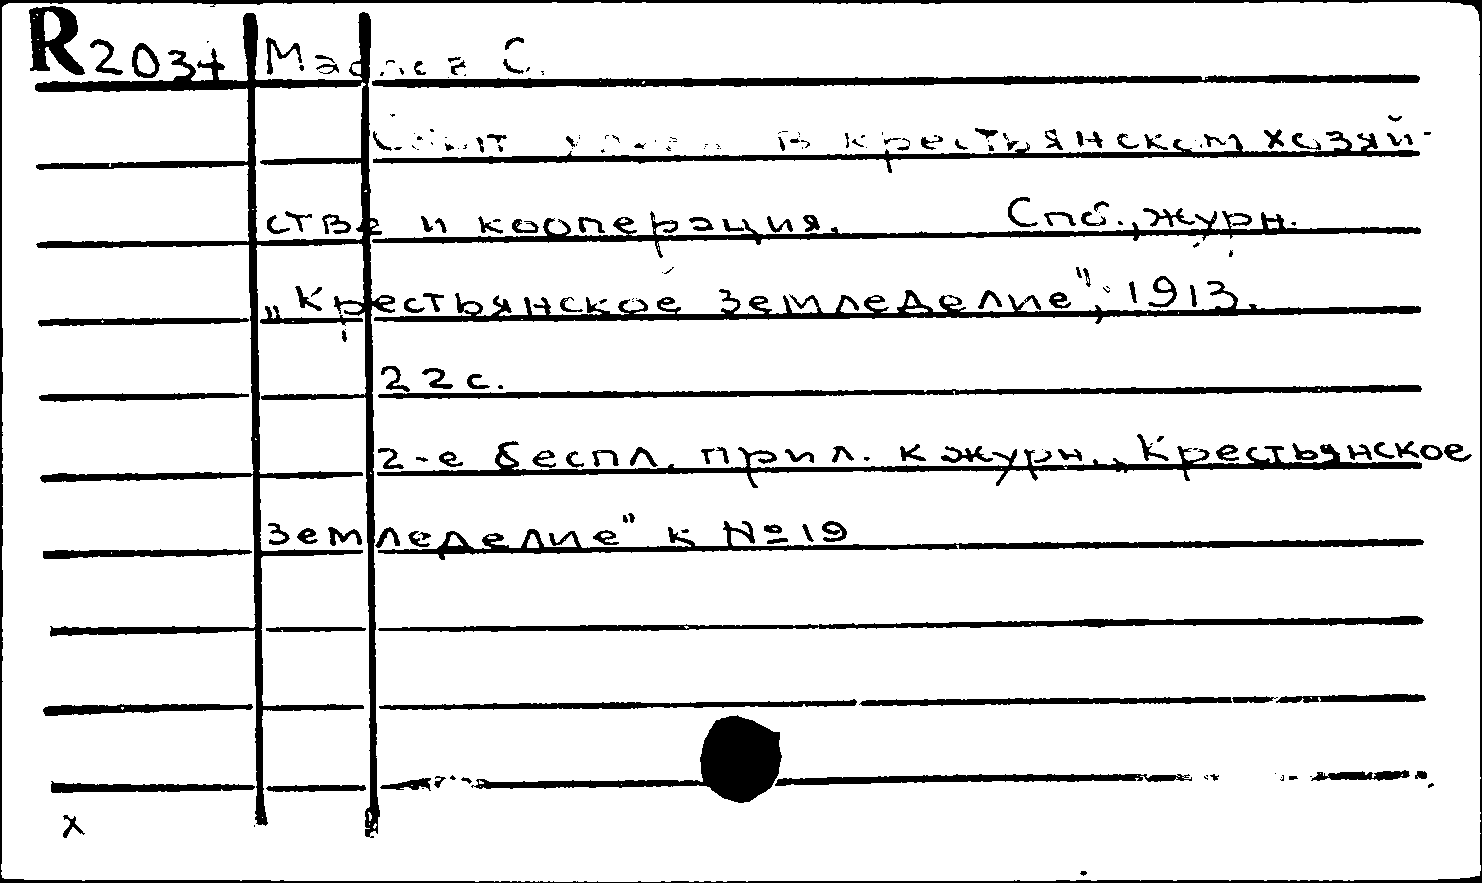 R2034 Маслов С.
Сбыт в крестьянском хозяй-
стве и кооперация. Спб., журн.
„Крестьянское земледелие", 1913.
22 с.
2-е беспл. прил. к журн. „Крестьянское
земледелие" к № 19
x